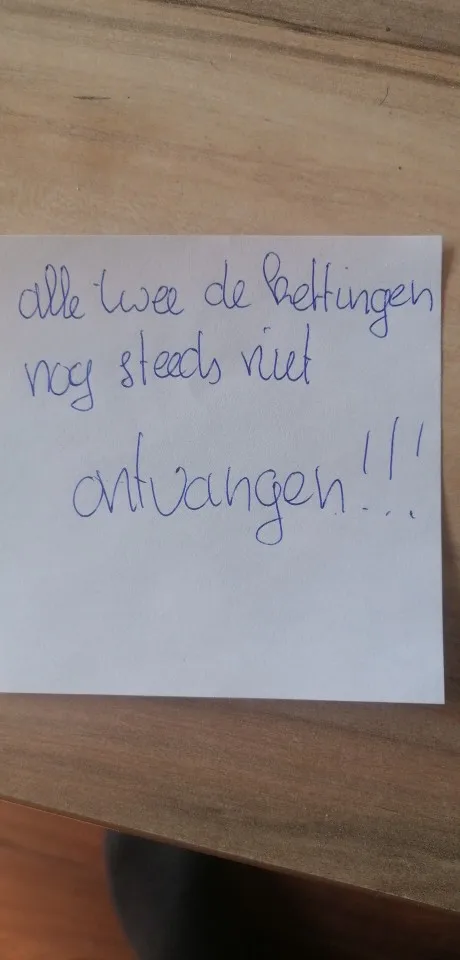 alle twee de kettingen
nog steeds niet
ontvangen!!!